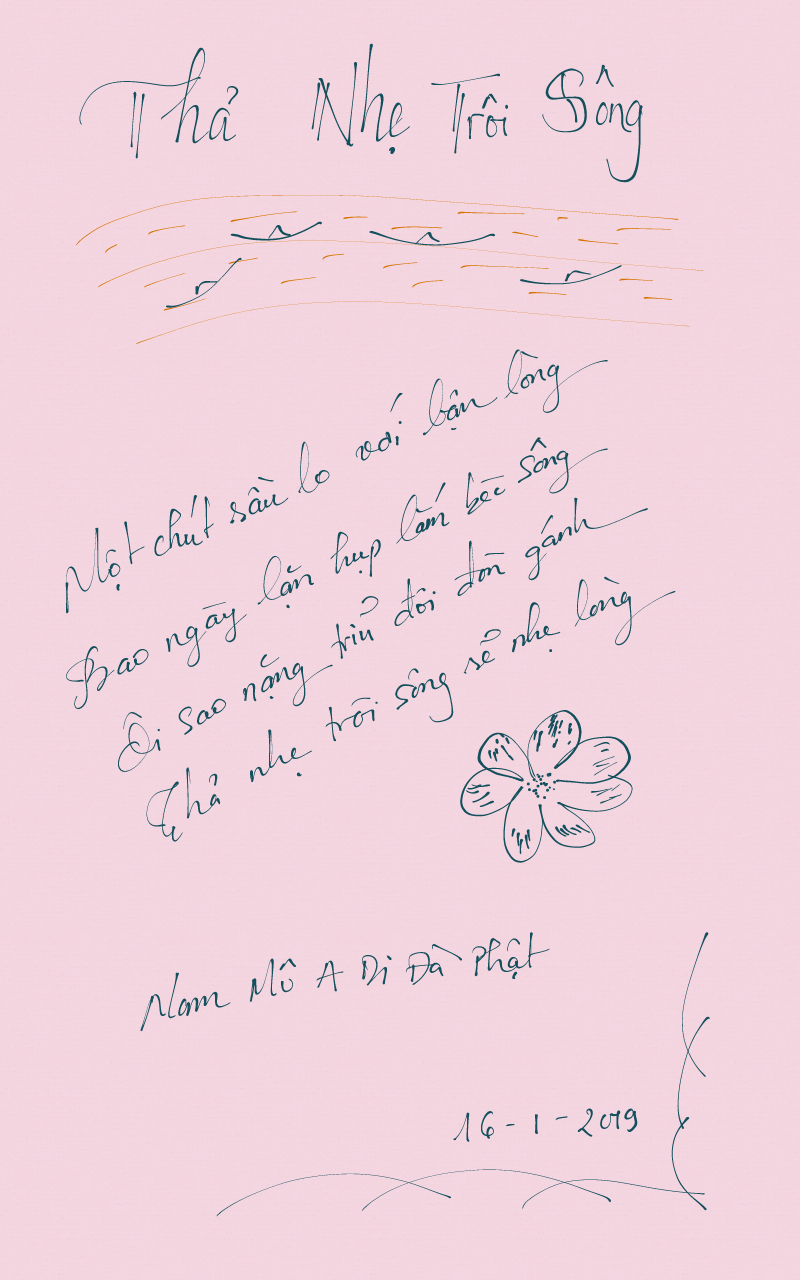 Thả Nhẹ Trôi Sông
Một chút sầu lo với bận lòng
Bao ngày lặn hụp lắm bến sông
Ôi sao nặng trĩu đôi đòn gánh
Thả nhẹ trôi sông sẽ nhẹ lòng
Nam Mô A Di Đà Phật
16-1-2019